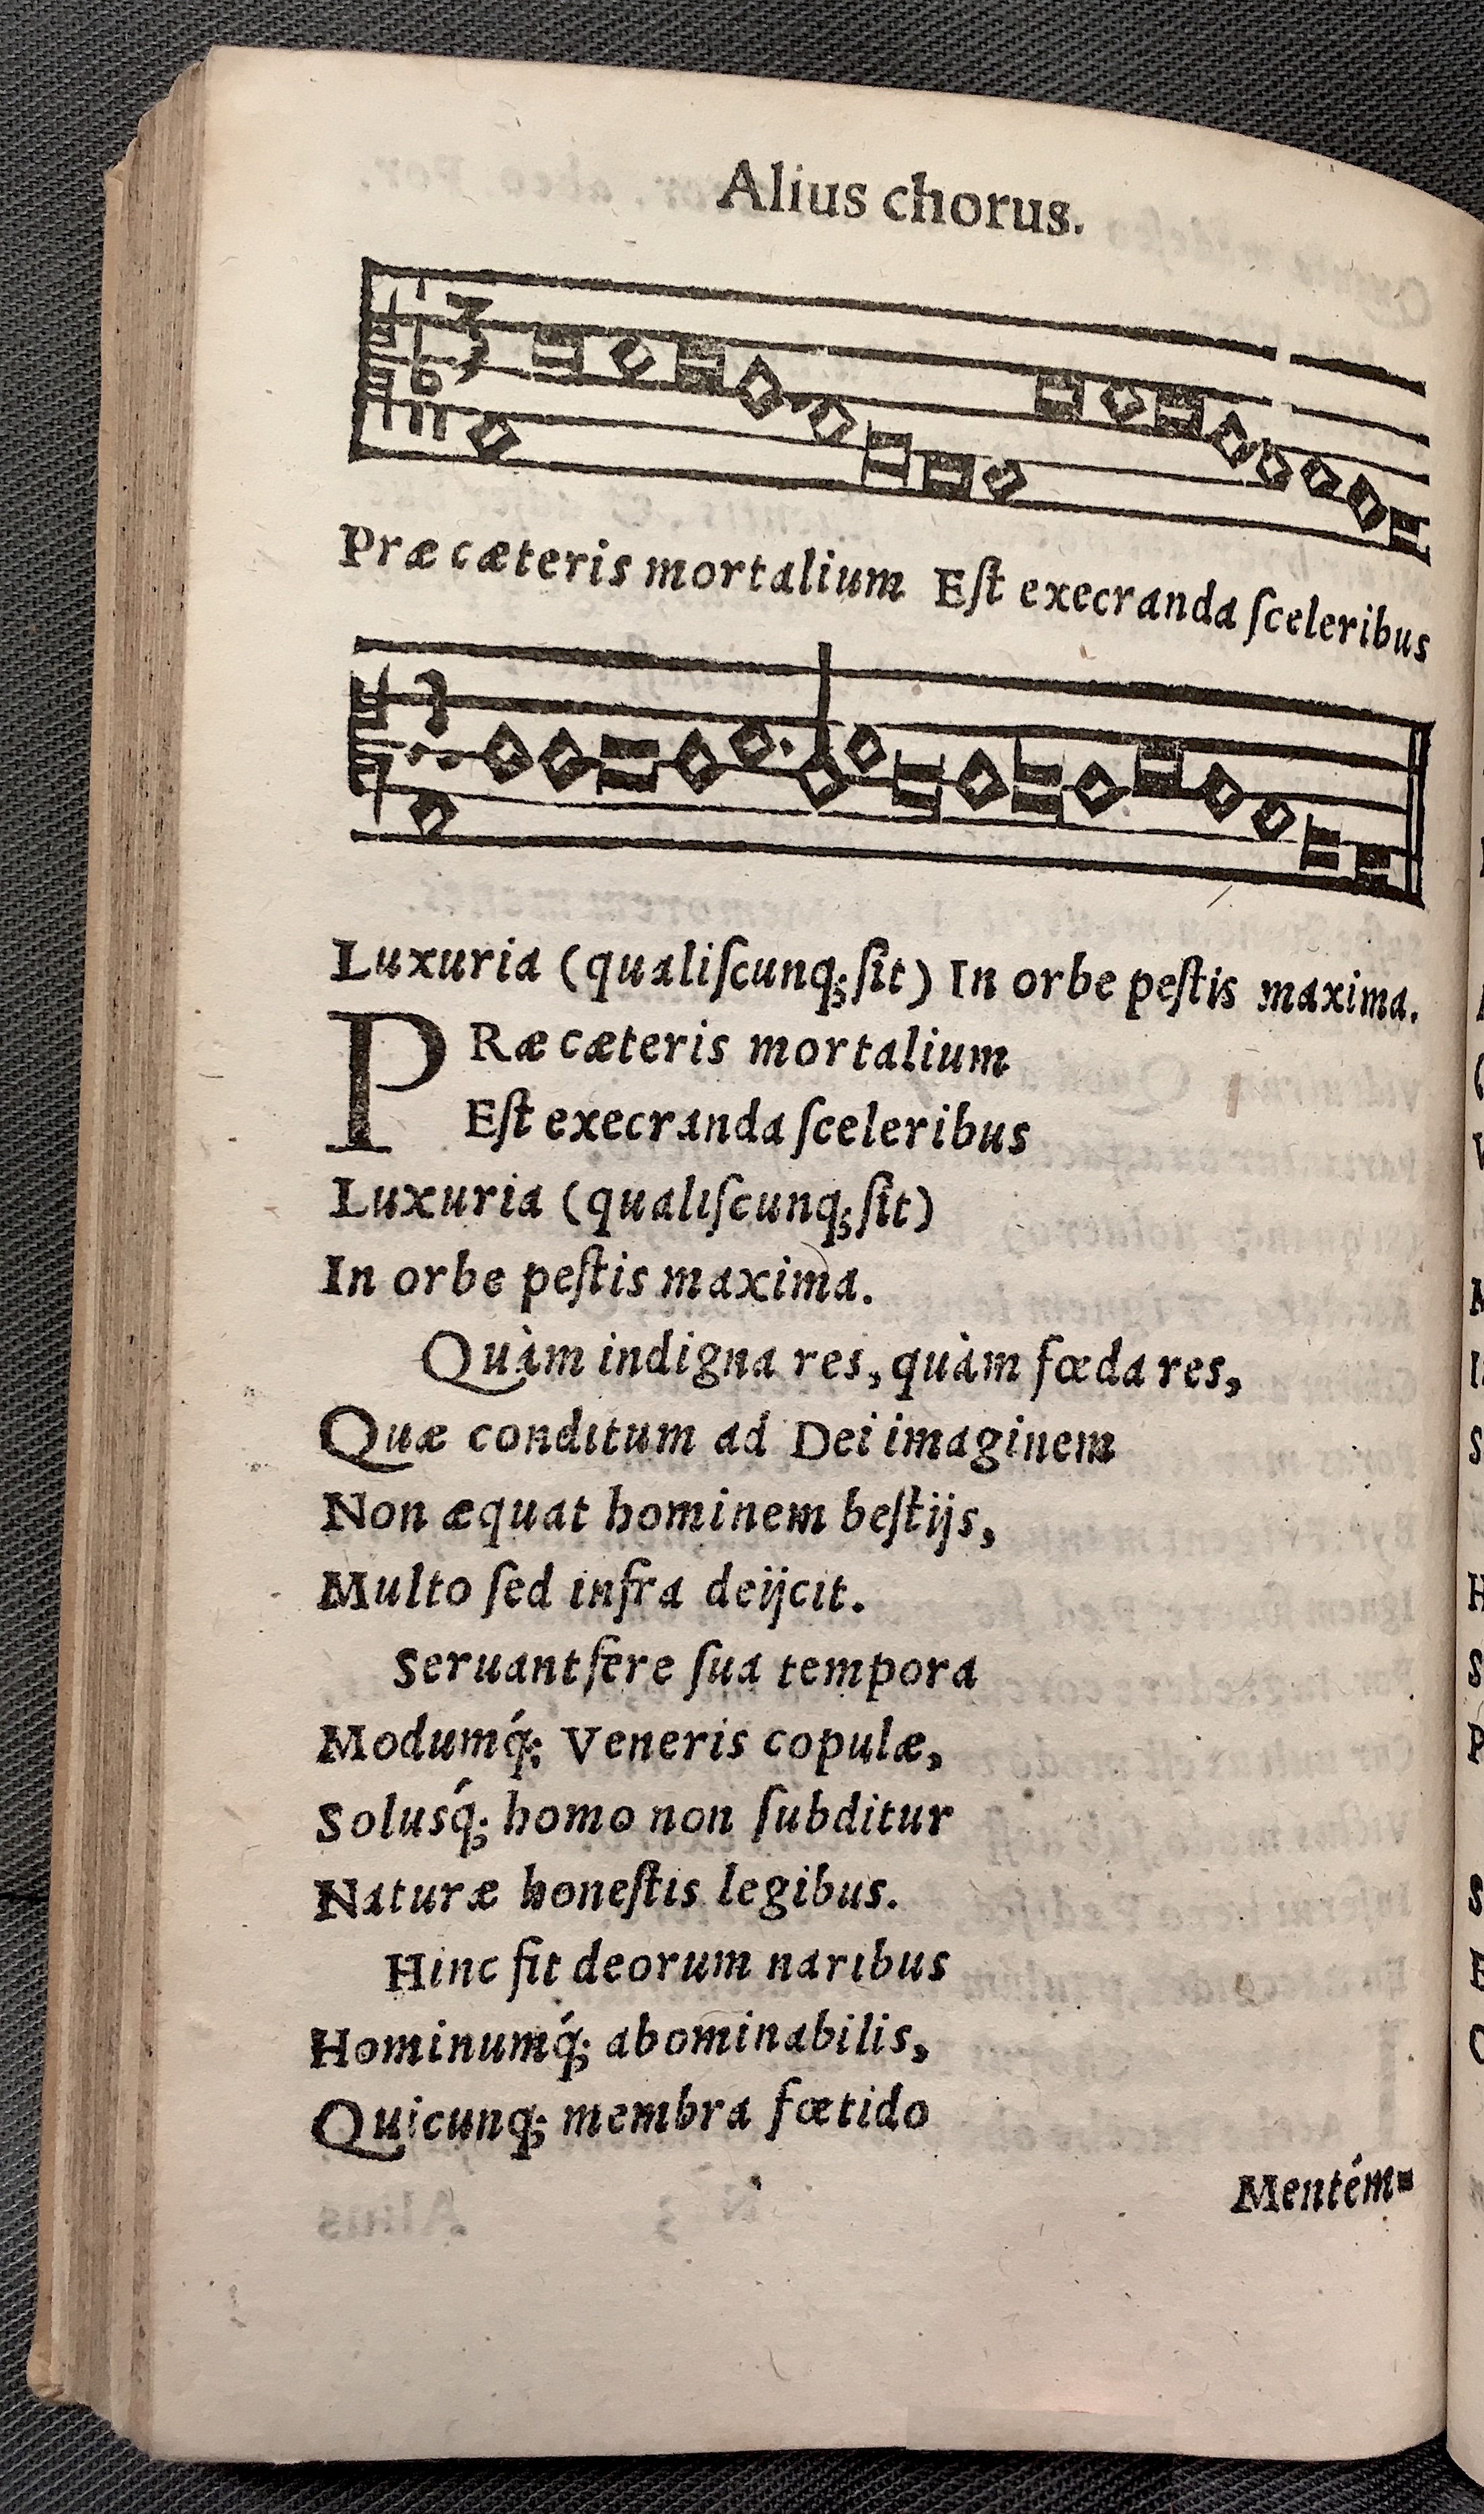 Alius chorus.
Præ cæteris mortalium Eſt execranda ſceleribus
Luxuria (qualiſcunq; ſit) In orbe peſtis maxima.
PRæ cæteris mortalium
Eſt execranda ſceleribus
Luxuria (qualiſcunq; ſit)
In orbe peſtis maxima.
Quàm indigna res, quàm fœda res,
Quæ conditum ad Dei imaginem
Non æquat hominem beſtijs,
Multo ſed infra deijcit.
Seruant fere ſua tempora
Modumq́; Veneris copulæ,
Solusq́; homo non ſubditur
Naturæ honeſtis legibus.
Hinc fit deorum naribus
Hominumq́; abominabilis,
Quicunq; membra fœtido
Mentém=